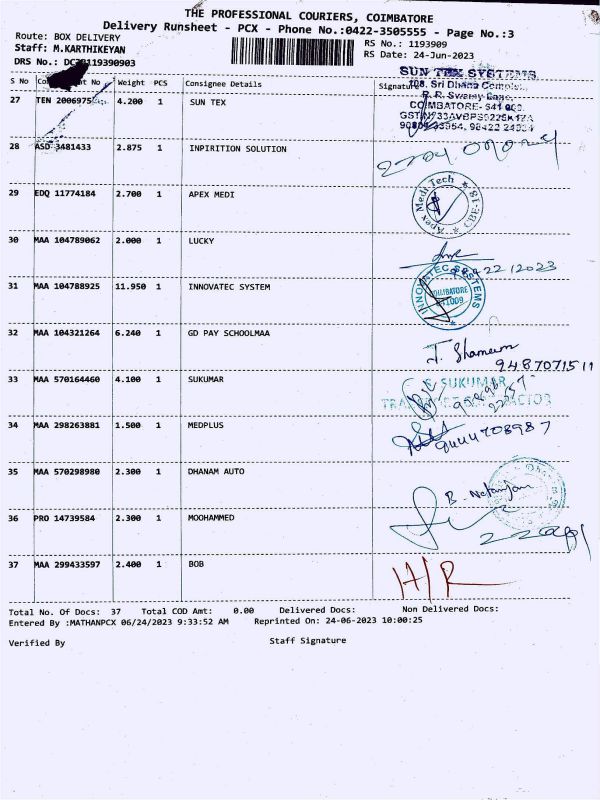 THE PROFESSIONAL COURIERS, COIMBATORE
Delivery Runsheet - PCX - Phone No.:0422-3505555 - Page No.:3
Route: BOX DELIVERY
RS No.: 1193909
Staff: M.KARTHIKEYAN
RS Date: 24-Jun-2023
DRS No.: 119390903
S No No Weight PCS Consignee Details Signature
27 TEN 2006975 4.200 1 SUN TEX
SUN TEX SYSTEMS
708, Sri Dhana Complex,
R. R. Swamy Lane,
COIMBATORE- 641
28 ASD 3481433 2.875 1 INPIRITION SOLUTION
29 EDQ 11774184 2.700 1 APEX MEDI
Apex Medi Tech * CBE-18 *
30 MAA 104789062 2.000 1 LUCKY
31 MAA 104788925 11.950 1 INNOVATEC SYSTEM
INNOVATEC SYSTEMS
COIMBATORE
641009
32 MAA 104321264 6.240 1 GD PAY SCHOOLMAA
J. Shameem
9487071511
33 MAA 570164460 4.100 1 SUKUMAR
S. SUKUMAR
34 MAA 298263881 1.500 1 MEDPLUS
9444708987
35 MAA 570298980 2.300 1 DHANAM AUTO
36 PRO 14739584 2.300 1 MOOHAMMED
37 MAA 299433597 2.400 1 BOB
H/R
Total No. Of Docs: 37 Total COD Amt: 0.00 Delivered Docs: Non Delivered Docs:
Entered By :MATHANPCX 06/24/2023 9:33:52 AM Reprinted On: 24-06-2023 10:00:25
Verified By Staff Signature